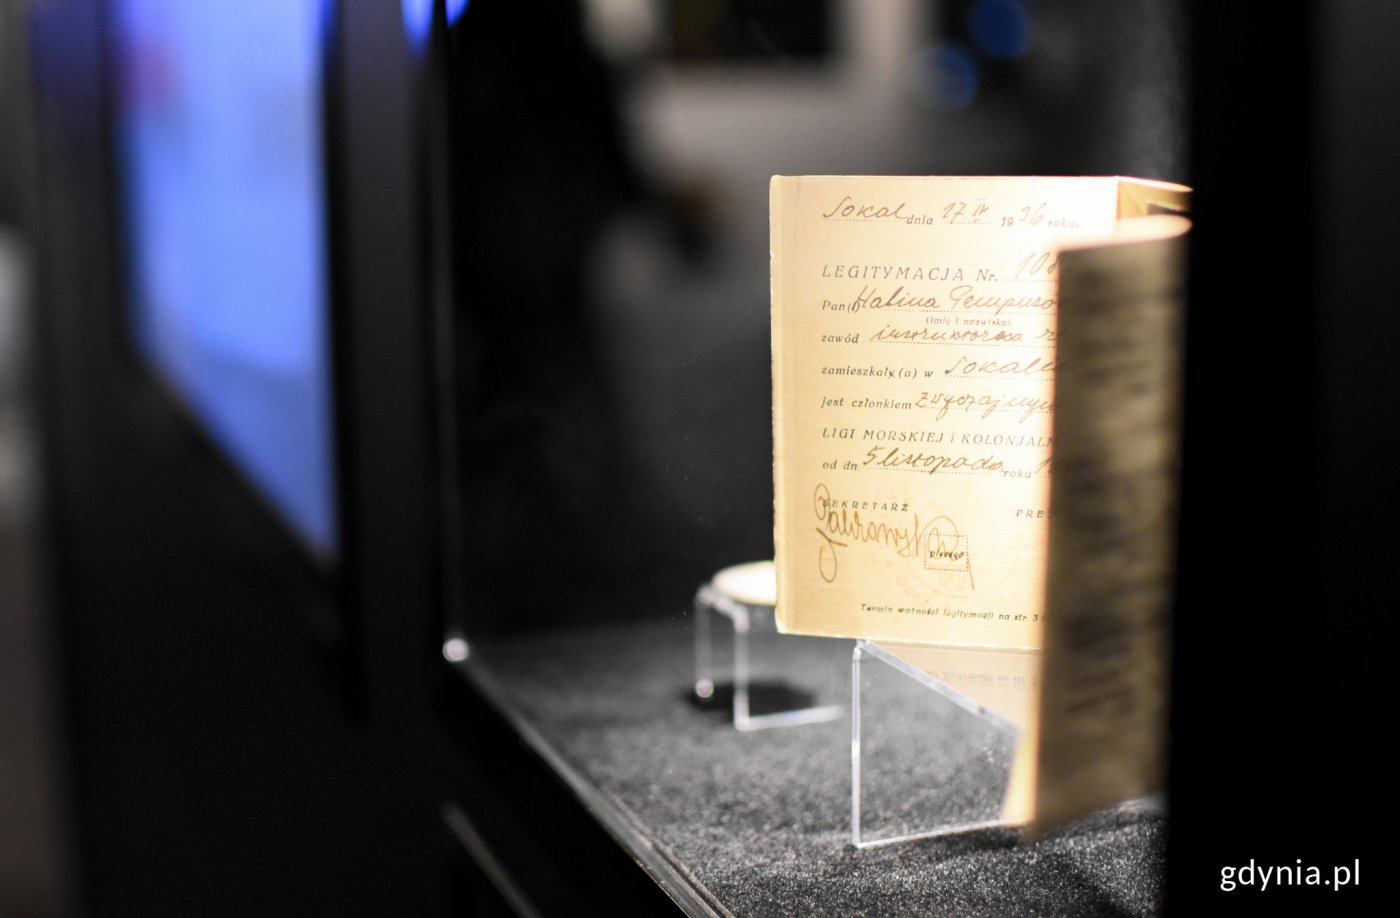 Sokal dnia 17 IV 1936 roku.
LEGITYMACJA Nr. 108
Pan(i) Halina
(imię i nazwisko)
zawód instruktorka
zamieszkały(a) w Sokalu
jest członkiem zwyczajnym
LIGI MORSKIEJ i KOLONJALN
od dn 5 listopada roku 1
SEKRETARZ PREZ
Termin ważności legitymacji na str. 3
gdynia.pl